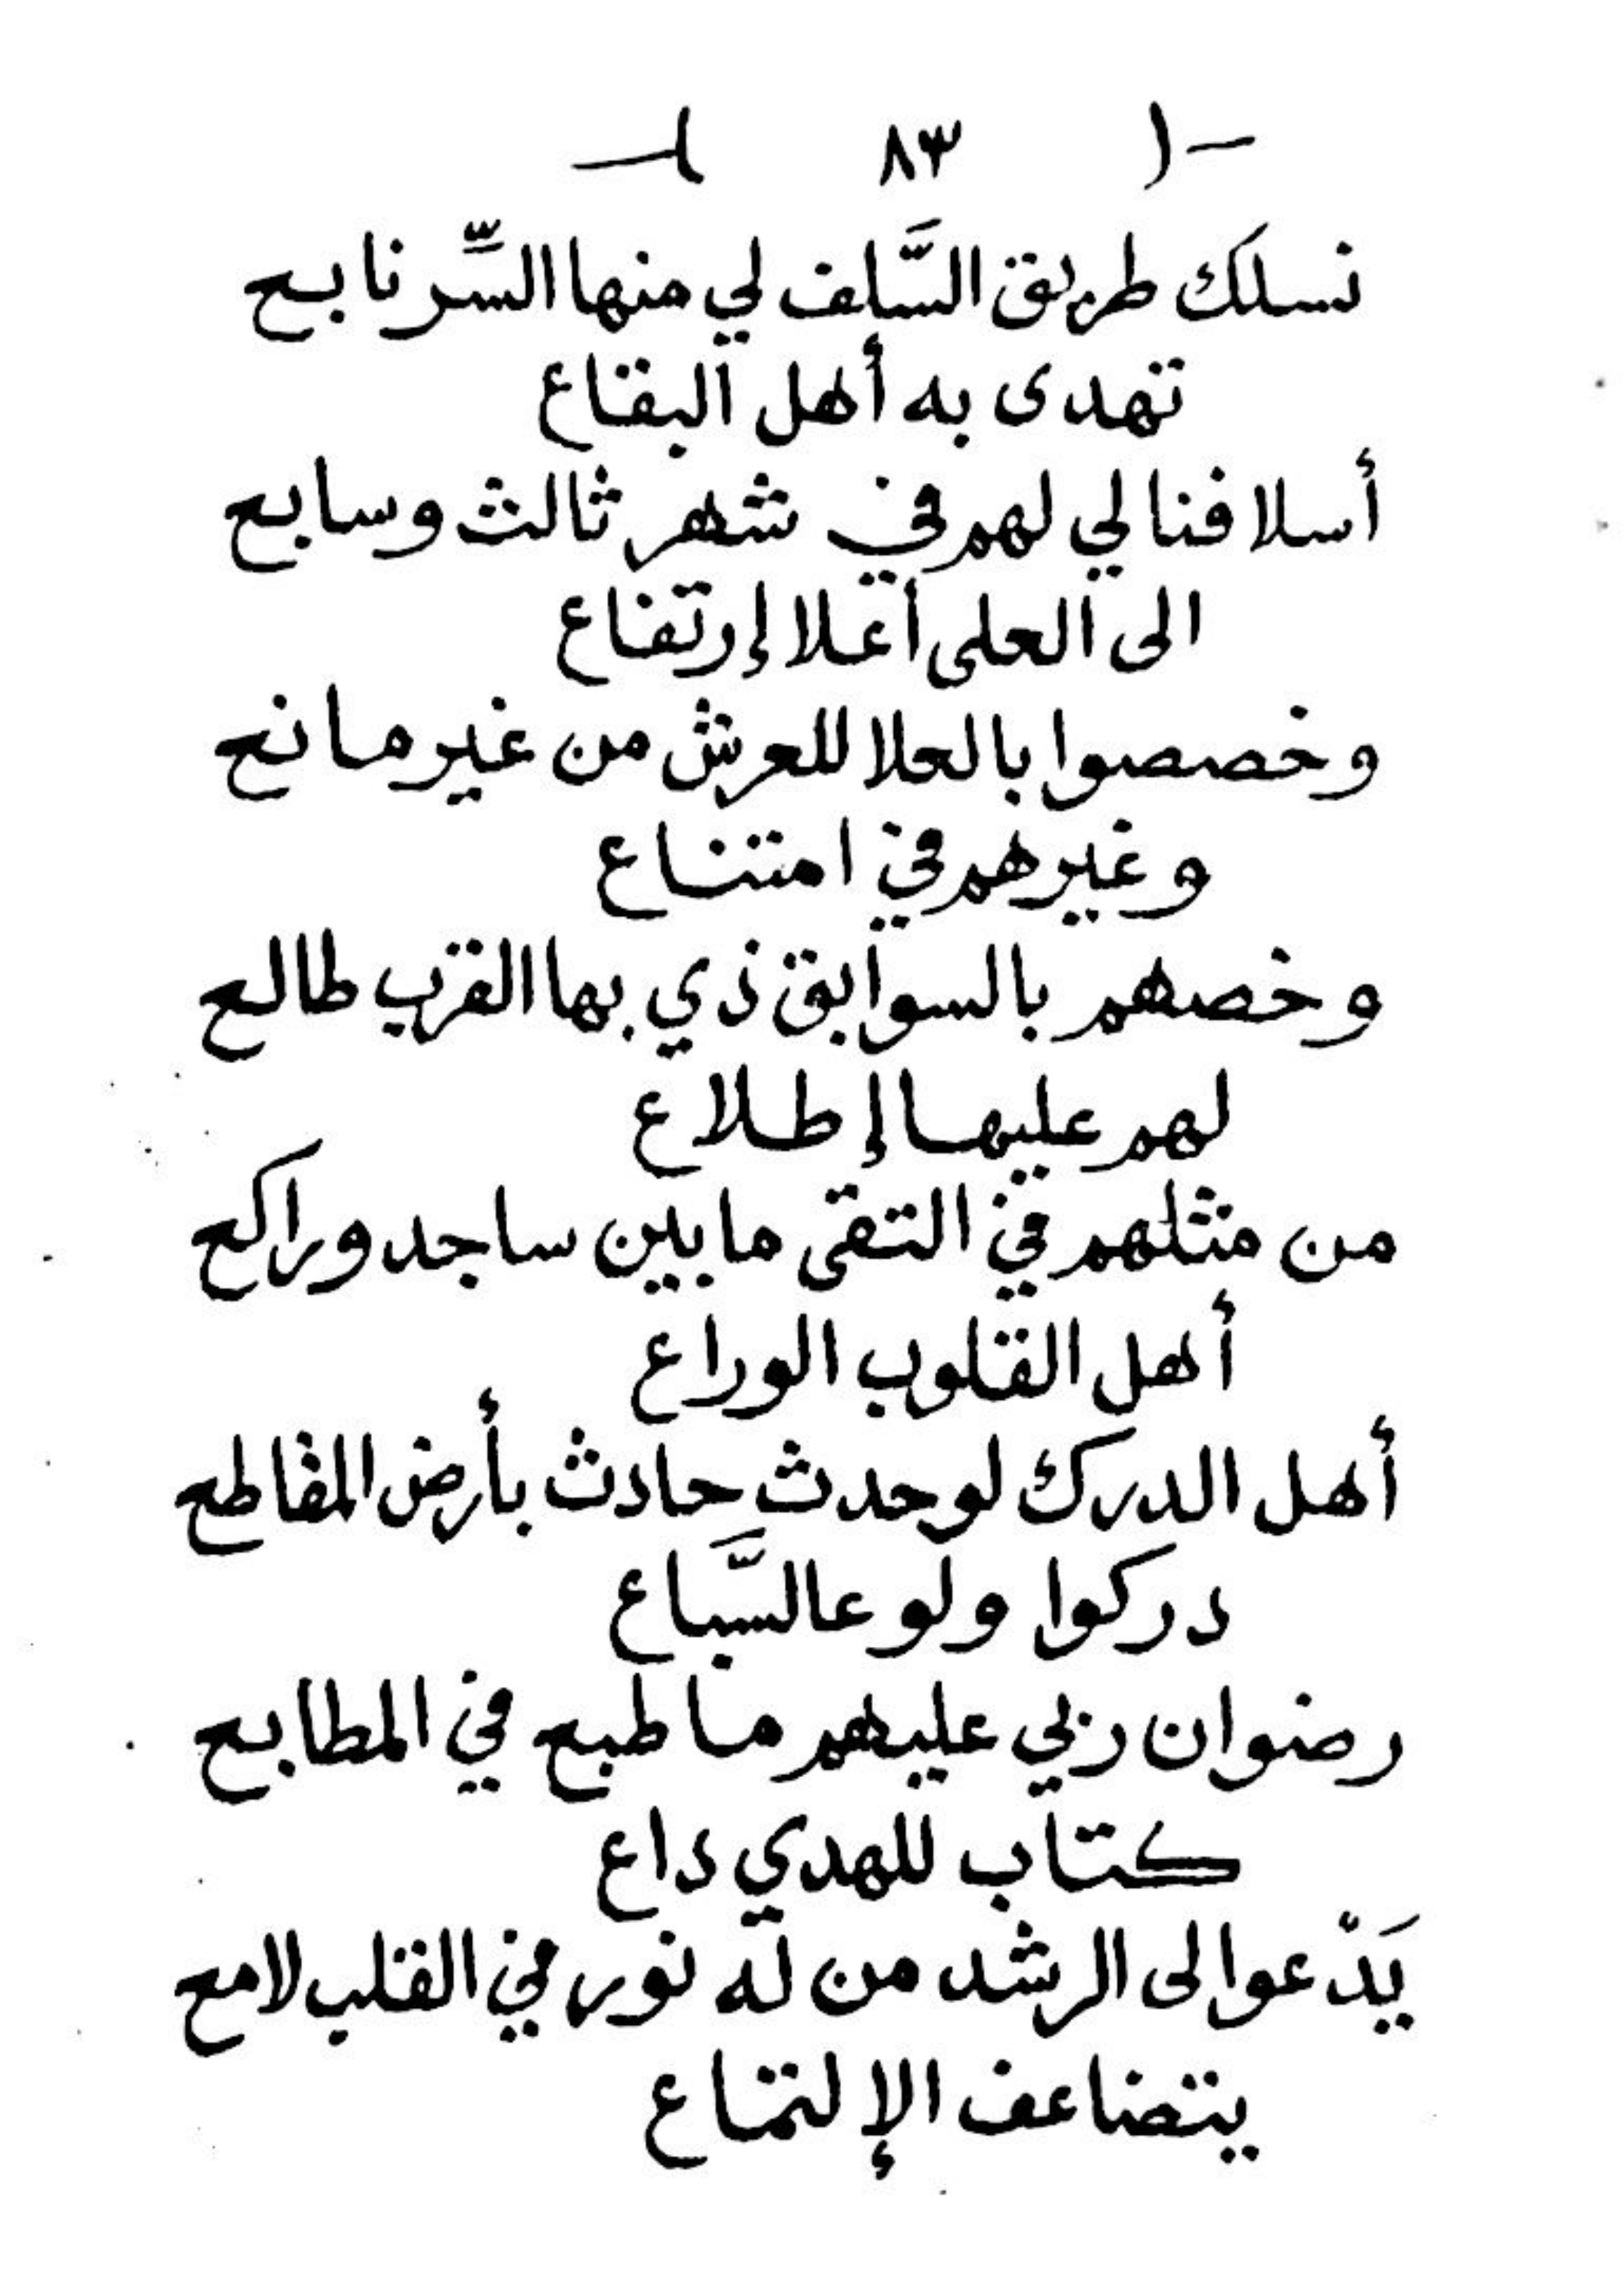 -( ٨٣ )-
نسلك طريق السَّلف لي منها السِّر نابع
تهدى به أهل البقاع
أسلافنا لي لهم في شهر ثالث وسابع
الى العلى أعلا إرتفاع
وخصصوا بالعلا للعرش من غير مانع
وغيرهم في امتناع
وخصهم بالسوابق ذي بها القرب طالع
لهم عليها إطلاع
من مثلهم في التقى ما بين ساجد وراكع
أهل القلوب الوراع
أهل الدرك لو حدث حادث بأرض المقاطع
دركوا ولو عالسَّباع
رضوان ربي عليهم ما طبع في المطابع
كتاب للهدي داع
يَدْعوا لى الرشد من له نور في القلب لامع
يتضاعف الإلتماع